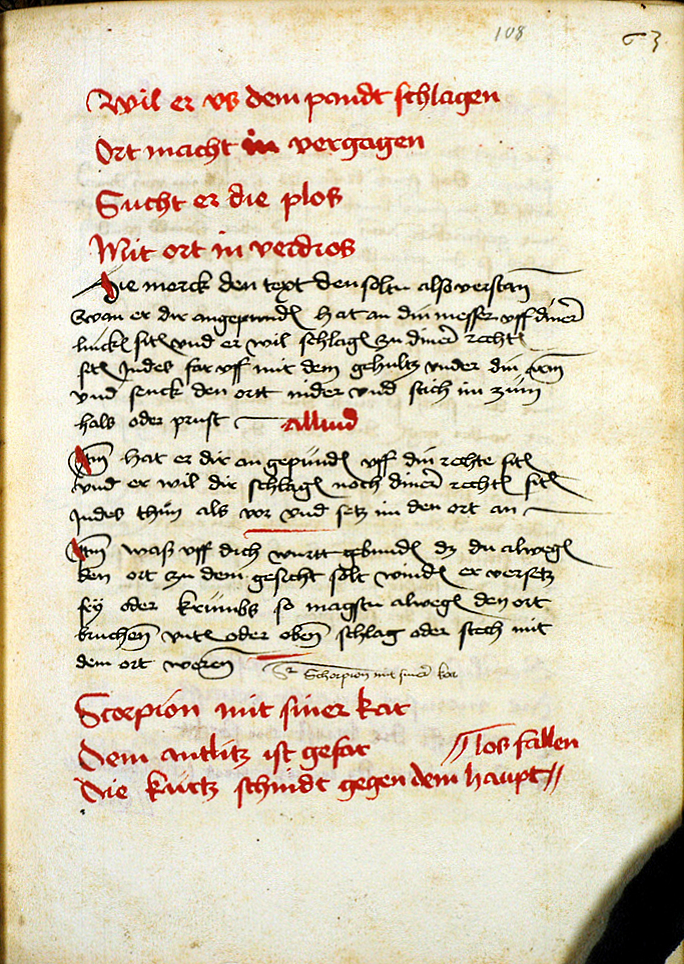 108
63
Wil er vs dem pandt schlagen
Ort macht in vergagen
Sucht er die plos
Mit ort in verdros
Hie merck den text den soltu also verstan
Swan er dir angepunden hat an din messer vff diner
lincken siten vnd er wil schlagen zu diner rechten
siten Indes far vff mit dem gehultz vnder din
vnd senck den ortt nider vnd stich im zům
hals oder prust allud
Itm hat er dir an gepůnden vff din rechte siten
vnd er wil dir schlagen noch diner rechten siten
Indes thůn als vor vnd setz im den ort an
Itm waß vff dich wurtt gebunden dz du alwegen
den ort zu dem gesicht solt winden er versetz
sey oder krůmbs so magstu alwegen den ort
bruchen vnten oder oben schlag oder stech mit
dem ort weren
Schorpion mit siner kar
Scorpion mit siner kar
Dem antlitz ist gefar
//los fallen
Die kůrtz schnidt gegen dem haupt//